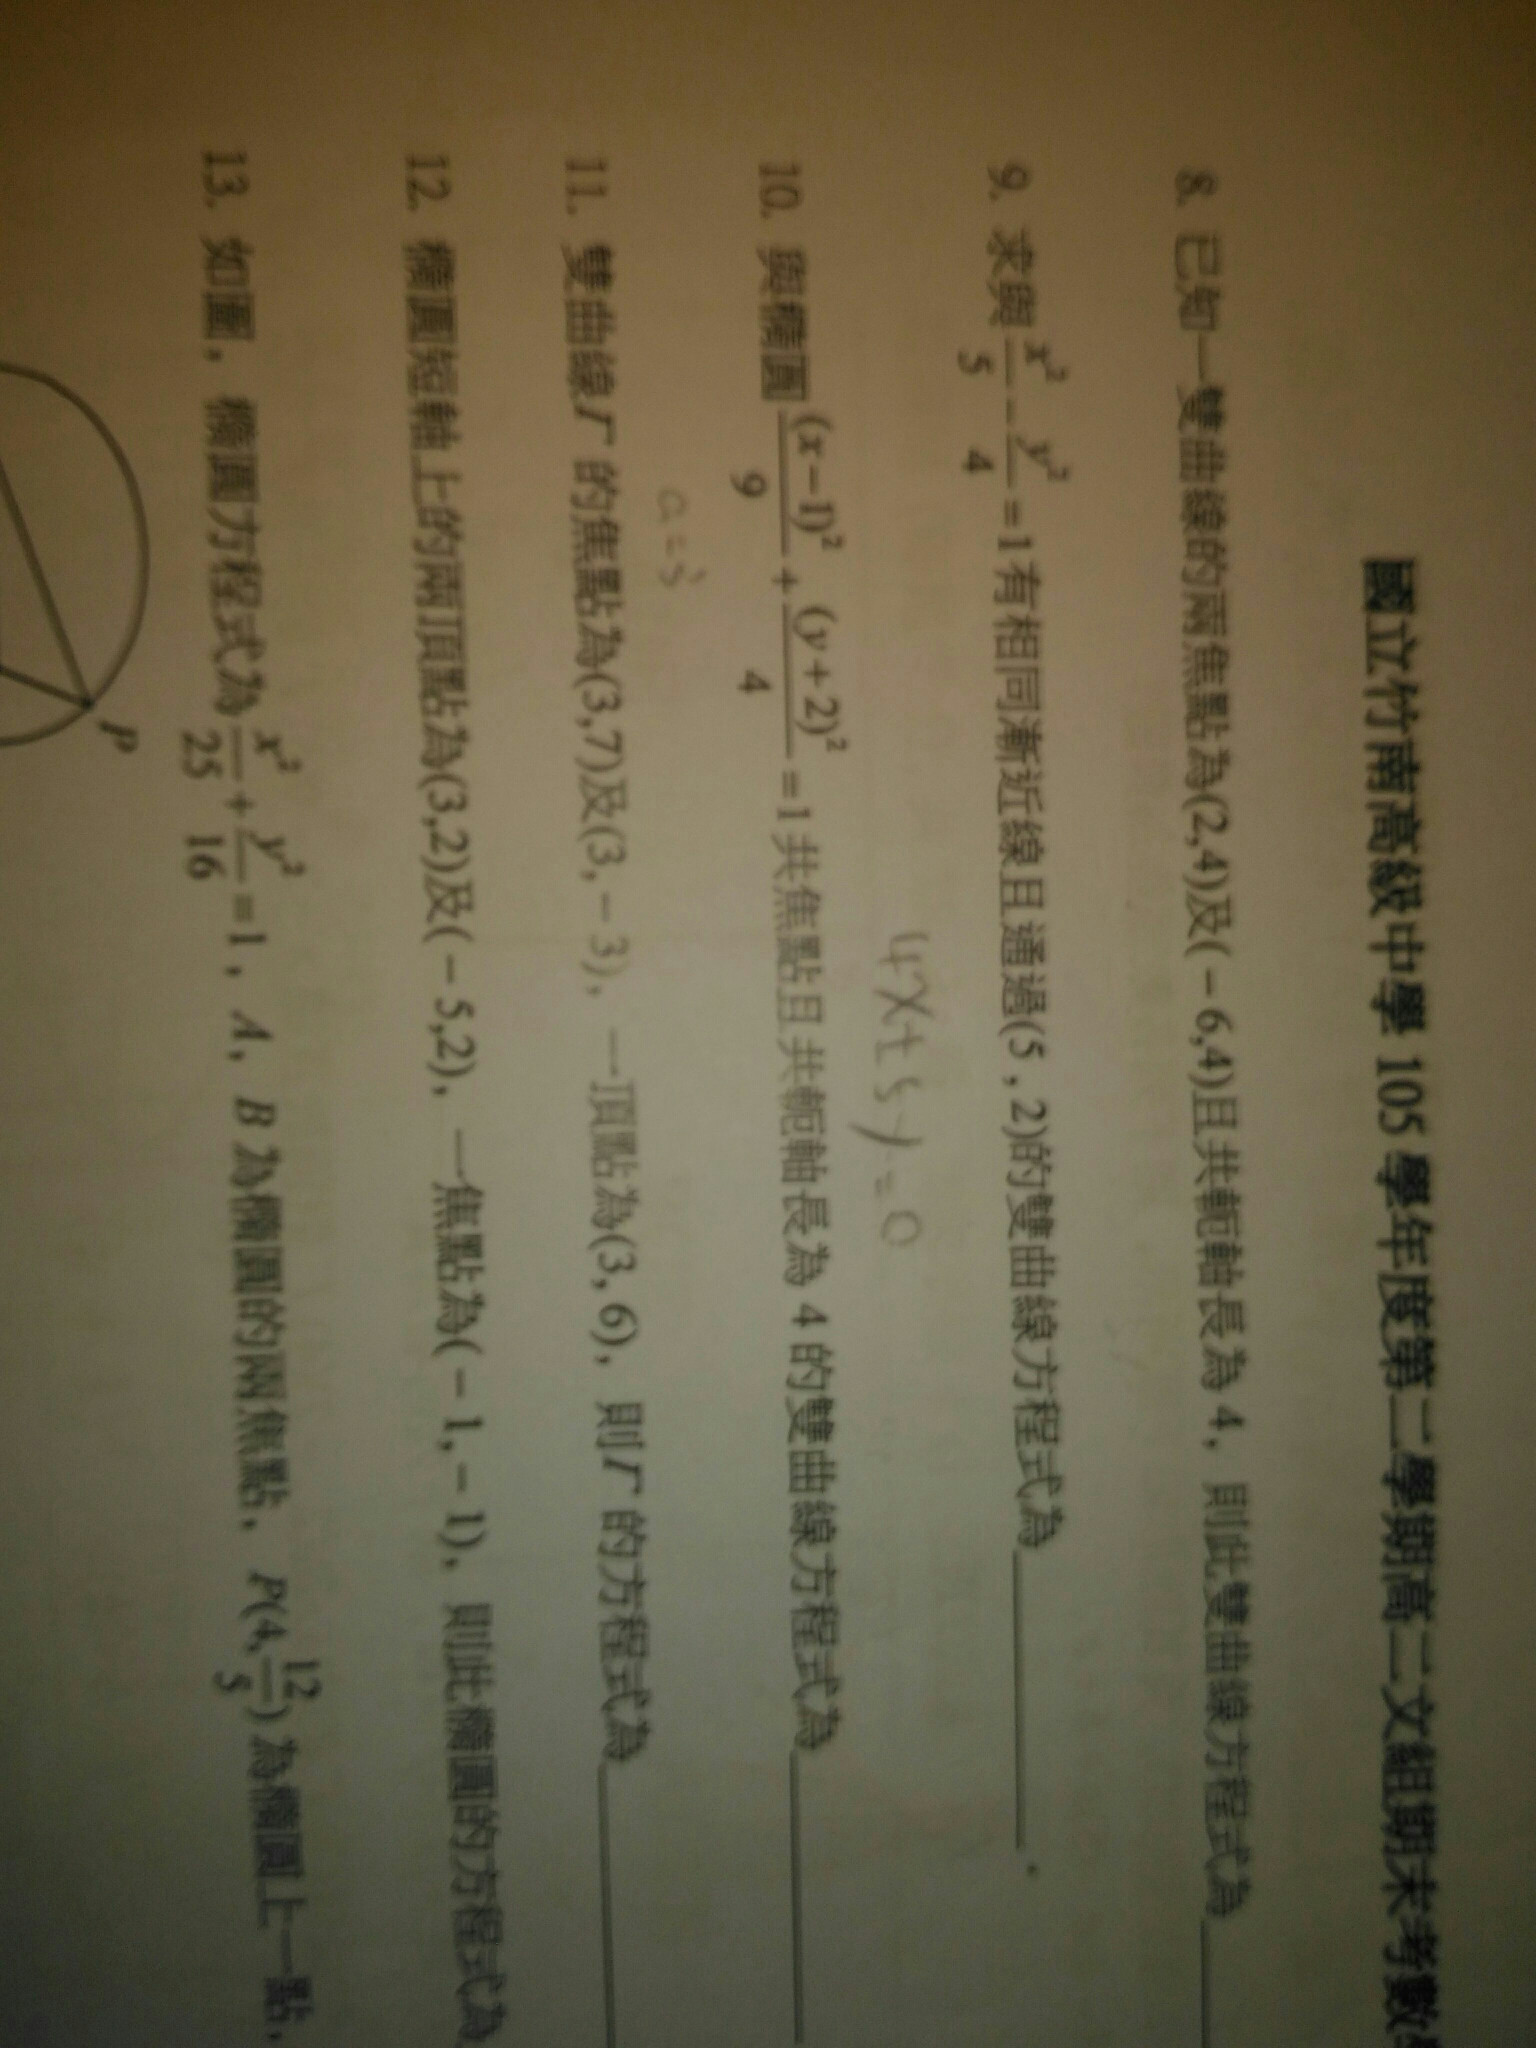 國立竹南高級中學 105 學年度第二學期高二文組期末考數
8. 已知一雙曲線的兩焦點為(2,4)及(－6,4)且共軛軸長為 4，則此雙曲線方程式為
9. 求與 x²/5 - y²/4 =1有相同漸近線且通過(5 , 2)的雙曲線方程式為 .
4x±5y=0
10. 與橢圓 (x-1)²/9 + (y+2)²/4 =1共焦點且共軛軸長為 4 的雙曲線方程式為
11. 雙曲線Γ 的焦點為(3,7)及(3,－3)，一頂點為(3, 6)，則Γ 的方程式為
12. 橢圓短軸上的兩頂點為(3,2)及(－5,2)，一焦點為(－1,－1)，則此橢圓的方程式為
13. 如圖，橢圓方程式為 x²/25 + y²/16 =1，A，B 為橢圓的兩焦點，P(4, 12/5) 為橢圓上一點，
P